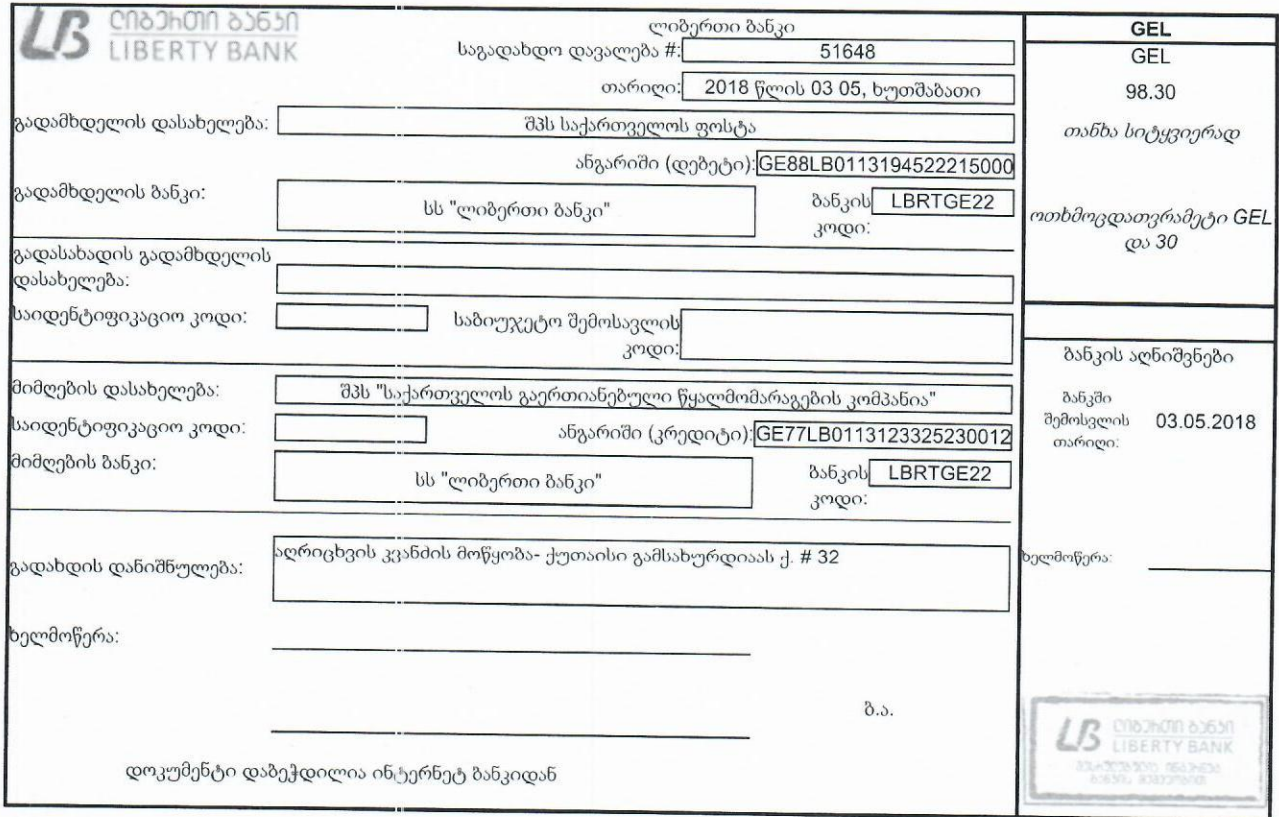 ლიბერთი ბანკი
LIBERTY BANK
ლიბერთი ბანკი
საგადახდო დავალება #: 51648
თარიღი: 2018 წლის 03 05, ხუთშაბათი
გადამხდელის დასახელება: შპს საქართველოს ფოსტა
ანგარიში (დებეტი): GE88LB0113194522215000
გადამხდელის ბანკი: სს "ლიბერთი ბანკი" ბანკის კოდი: LBRTGE22
გადასახადის გადამხდელის
დასახელება:
საიდენტიფიკაციო კოდი: საბიუჯეტო შემოსავლის
კოდი:
მიმღების დასახელება: შპს "საქართველოს გაერთიანებული წყალმომარაგების კომპანია"
საიდენტიფიკაციო კოდი: ანგარიში (კრედიტი): GE77LB0113123325230012
მიმღების ბანკი: სს "ლიბერთი ბანკი" ბანკის კოდი: LBRTGE22
გადახდის დანიშნულება: აღრიცხვის კვანძის მოწყობა- ქუთაისი გამსახურდიაას ქ. # 32
ხელმოწერა:
ბ.ა.
დოკუმენტი დაბეჭდილია ინტერნეტ ბანკიდან
GEL
GEL
98.30
თანხა სიტყვიერად
ოთხმოცდათვრამეტი GEL
და 30
ბანკის აღნიშვნები
ბანკში
შემოსვლის 03.05.2018
თარიღი:
ხელმოწერა:
ლიბერთი ბანკი
LIBERTY BANK